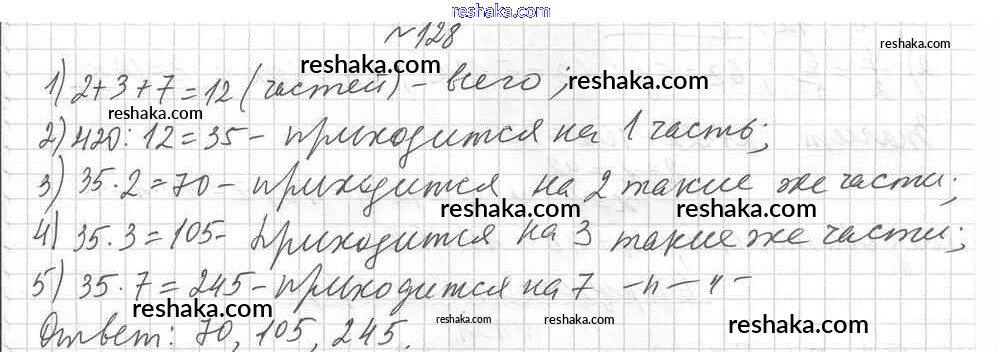 reshaka.com
№128
reshaka.com
reshaka.com
1) 2+3+7=12 (частей) - всего;
reshaka.com
reshaka.com
2) 420:12=35 - приходится на 1 часть;
reshaka.com
3) 35·2=70 - приходится на 2 такие же части;
reshaka.com
reshaka.com
4) 35·3=105 - приходится на 3 такие же части;
5) 35·7=245 - приходится на 7 -"-"-
reshaka.com
reshaka.com
reshaka.com
reshaka.com
Ответ: 70, 105, 245.